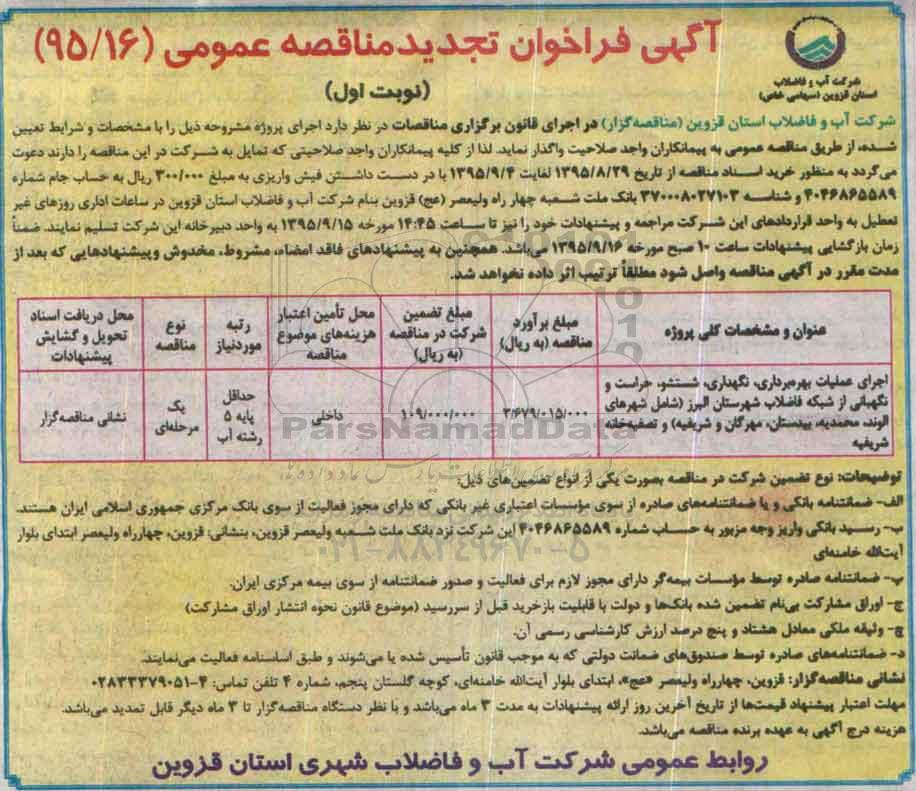 آگهی فراخوان تجدیدمناقصه عمومی (۹۵/۱۶)
شرکت آب و فاضلاب
استان قزوین (سهامی خاص)
(نوبت اول)
شرکت آب و فاضلاب استان قزوین (مناقصه‌گزار) در اجرای قانون برگزاری مناقصات در نظر دارد اجرای پروژه مشروحه ذیل را با مشخصات و شرایط تعیین
شده، از طریق مناقصه عمومی به پیمانکاران واجد صلاحیت واگذار نماید. لذا از کلیه پیمانکاران واجد صلاحیتی که تمایل به شرکت در این مناقصه را دارند دعوت
می‌گردد به منظور خرید اسناد مناقصه از تاریخ ۱۳۹۵/۸/۲۹ لغایت ۱۳۹۵/۹/۴ با در دست داشتن فیش واریزی به مبلغ ۳۰۰/۰۰۰ ریال به حساب جام شماره
۴۰۴۶۸۶۵۵۸۹ و شناسه ۳۷۰۰۰۸۰۲۷۱۰۳ بانک ملت شعبه چهار راه ولیعصر (عج) قزوین بنام شرکت آب و فاضلاب استان قزوین در ساعات اداری روزهای غیر
تعطیل به واحد قراردادهای این شرکت مراجعه و پیشنهادات خود را نیز تا ساعت ۱۴:۴۵ مورخه ۱۳۹۵/۹/۱۵ به واحد دبیرخانه این شرکت تسلیم نمایند. ضمناً
زمان بازگشایی پیشنهادات ساعت ۱۰ صبح مورخه ۱۳۹۵/۹/۱۶ می‌باشد. همچنین به پیشنهادهای فاقد امضاء، مشروط، مخدوش و پیشنهادهایی که بعد از
مدت مقرر در آگهی مناقصه واصل شود مطلقاً ترتیب اثر داده نخواهد شد.
عنوان و مشخصات کلی پروژه
مبلغ برآورد
مناقصه (به ریال)
مبلغ تضمین
شرکت در مناقصه
(به ریال)
محل تأمین اعتبار
هزینه‌های موضوع
مناقصه
رتبه
موردنیاز
نوع
مناقصه
محل دریافت اسناد
تحویل و گشایش
پیشنهادات
اجرای عملیات بهره‌برداری، نگهداری، شستشو، حراست و
نگهبانی از شبکه فاضلاب شهرستان البرز (شامل شهرهای
الوند، محمدیه، بیدستان، مهرگان و شریفیه) و تصفیه‌خانه
شریفیه
۲/۴۷۹/۰۱۵/۰۰۰
۱۰۹/۰۰۰/۰۰۰
داخلی
حداقل
پایه ۵
رشته آب
یک
مرحله‌ای
نشانی مناقصه‌گزار
ParsNamadData
۰۲۱-۸۸۳۴۹۶۷۰-۵
توضیحات: نوع تضمین شرکت در مناقصه بصورت یکی از انواع تضمین‌های ذیل:
الف- ضمانتنامه بانکی و یا ضمانتنامه‌های صادره از سوی مؤسسات اعتباری غیر بانکی که دارای مجوز فعالیت از سوی بانک مرکزی جمهوری اسلامی ایران هستند.
ب- رسید بانکی واریز وجه مزبور به حساب شماره ۴۰۴۶۸۶۵۵۸۹ این شرکت نزد بانک ملت شعبه ولیعصر قزوین، بنشانی: قزوین، چهارراه ولیعصر ابتدای بلوار
آیت‌الله خامنه‌ای
پ- ضمانتنامه صادره توسط مؤسسات بیمه‌گر دارای مجوز لازم برای فعالیت و صدور ضمانتنامه از سوی بیمه مرکزی ایران.
ج- اوراق مشارکت بی‌نام تضمین شده بانک‌ها و دولت با قابلیت بازخرید قبل از سررسید (موضوع قانون نحوه انتشار اوراق مشارکت)
چ- وثیقه ملکی معادل هشتاد و پنج درصد ارزش کارشناسی رسمی آن.
د- ضمانتنامه‌های صادره توسط صندوق‌های ضمانت دولتی که به موجب قانون تأسیس شده یا می‌شوند و طبق اساسنامه فعالیت می‌نمایند.
نشانی مناقصه‌گزار: قزوین، چهارراه ولیعصر «عج»، ابتدای بلوار آیت‌الله خامنه‌ای، کوچه گلستان پنجم، شماره ۴ تلفن تماس: ۴-۰۲۸۳۳۳۷۹۰۵۱
مهلت اعتبار پیشنهاد قیمت‌ها از تاریخ آخرین روز ارائه پیشنهادات به مدت ۳ ماه می‌باشد و با نظر دستگاه مناقصه‌گزار تا ۳ ماه دیگر قابل تمدید می‌باشد.
هزینه درج آگهی به عهده برنده مناقصه می‌باشد.
روابط عمومی شرکت آب و فاضلاب شهری استان قزوین